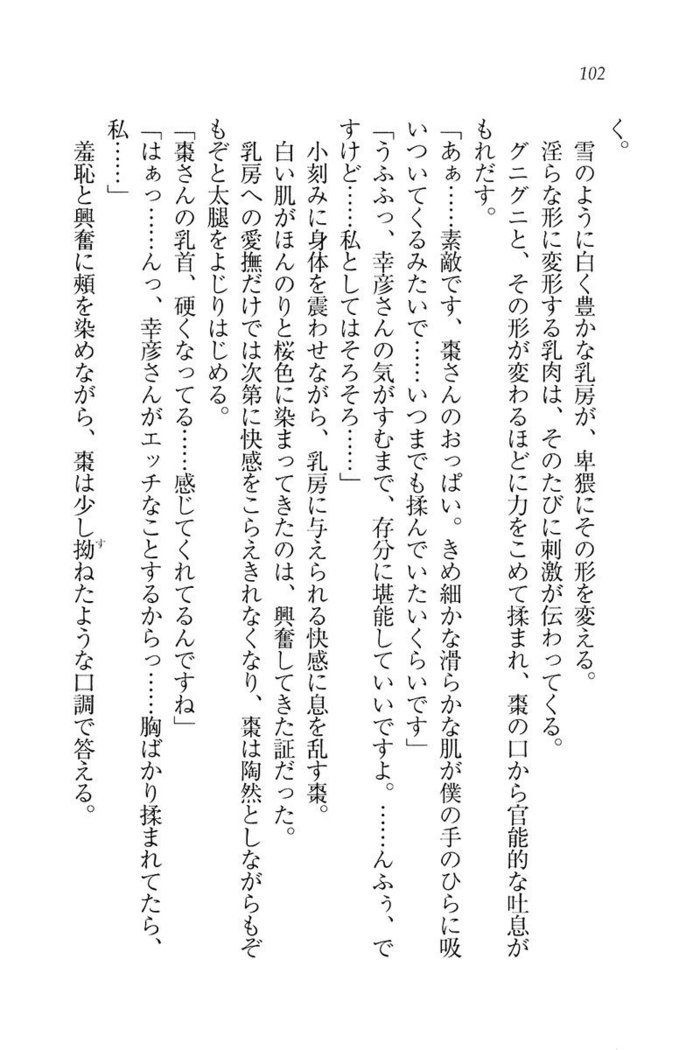 102
く。
雪のように白く豊かな乳房が、卑猥にその形を変える。
淫らな形に変形する乳肉は、そのたびに刺激が伝わってくる。
グニグニと、その形が変わるほどに力をこめて揉まれ、棗の口から官能的な吐息が
もれだす。
「あぁ……素敵です、棗さんのおっぱい。きめ細かな滑らかな肌が僕の手のひらに吸
いついてくるみたいで……いつまでも揉んでいたいくらいです」
「うふふっ、幸彦さんの気がすむまで、存分に堪能していいですよ。……んふぅ、で
すけど……私としてはそろそろ……」
小刻みに身体を震わせながら、乳房に与えられる快感に息を乱す棗。
白い肌がほんのりと桜色に染まってきたのは、興奮してきた証だった。
乳房への愛撫だけでは次第に快感をこらえきれなくなり、棗は陶然としながらもぞ
もぞと太腿をよじりはじめる。
「棗さんの乳首、硬くなってる……感じてくれてるんですね」
「はぁっ……んっ、幸彦さんがエッチなことするからっ……胸ばかり揉まれてたら、
私……」
羞恥と興奮に頬を染めながら、棗は少し拗すねたような口調で答える。